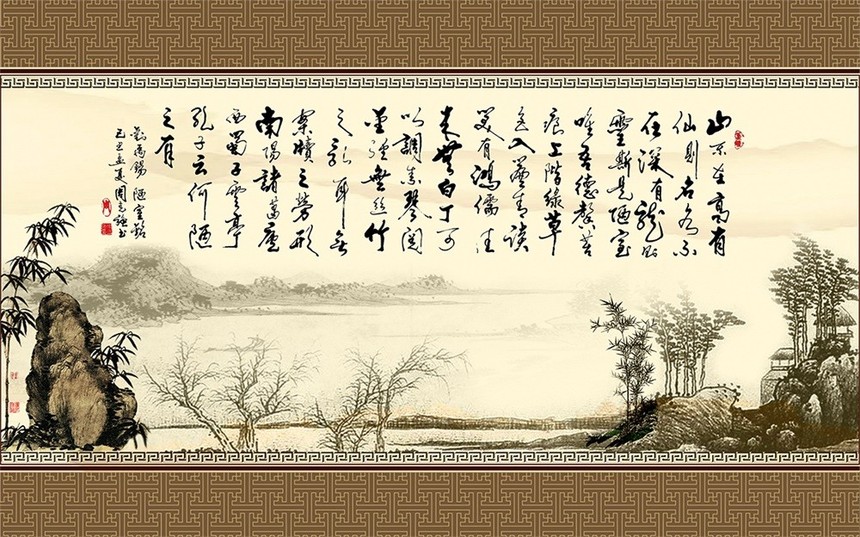 山不在高有
仙則名水不
在深有龍則
靈斯是陋室
唯吾德馨苔
痕上階綠草
色入簾青談
笑有鴻儒往
來無白丁可
以調素琴閱
金經無絲竹
之亂耳無
案牘之勞形
南陽諸葛廬
西蜀子雲亭
孔子云何陋
之有
劉禹錫 陋室銘
己丑孟夏周